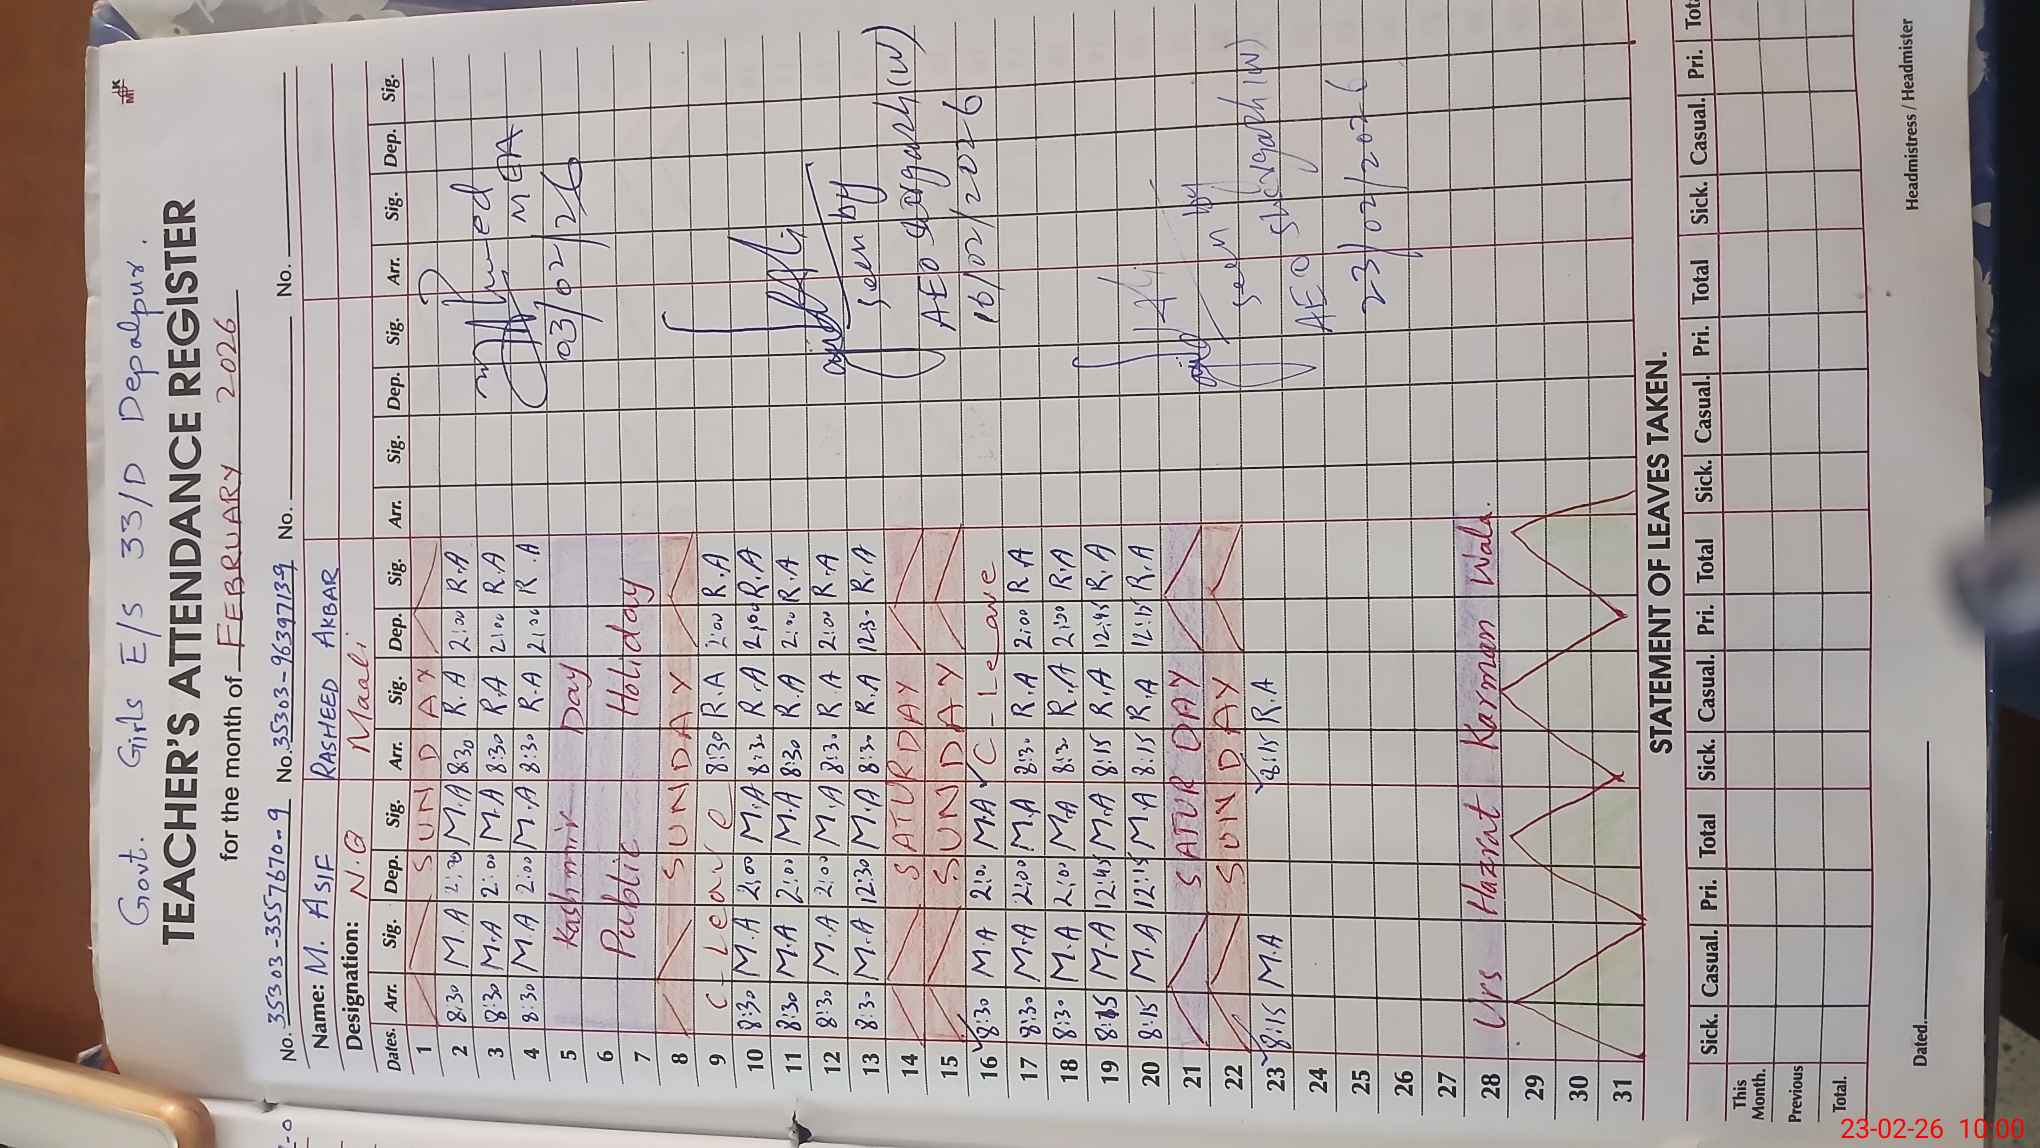 Govt. Girls E/S 33/D Depalpur.
TEACHER'S ATTENDANCE REGISTER
for the month of FEBRUARY 2026
No. 35303-3557670-9 No. 35303-9639713-9 No. No.
Name: M. ASIF RASHEED AKBAR
Designation: N.Q Maali
Dates. Arr. Sig. Dep. Sig. Arr. Sig. Dep. Sig. Arr. Sig. Dep. Sig. Arr. Sig. Dep. Sig.
1 SUNDAY
2 8:30 M.A 2:00 M.A 8:30 R.A 2:00 R.A
3 8:30 M.A 2:00 M.A 8:30 R.A 2:00 R.A
4 8:30 M.A 2:00 M.A 8:30 R.A 2:00 R.A
MEA
03/02/26
5 Kashmir Day
6
7 Public Holiday
8 SUNDAY
9 C-Leave 8:30 R.A 2:00 R.A
10 8:30 M.A 2:00 M.A 8:30 R.A 2:00 R.A
11 8:30 M.A 2:00 M.A 8:30 R.A 2:00 R.A
12 8:30 M.A 2:00 M.A 8:30 R.A 2:00 R.A
13 8:30 M.A 12:30 M.A 8:30 R.A 12:30 R.A
Seen by
14 SATURDAY
15 SUNDAY
AEO Shergarh (W)
16/02/2026
16 8:30 M.A 2:00 M.A C-Leave
17 8:30 M.A 2:00 M.A 8:30 R.A 2:00 R.A
18 8:30 M.A 2:00 M.A 8:30 R.A 2:00 R.A
19 8:15 M.A 12:45 M.A 8:15 R.A 12:45 R.A
20 8:15 M.A 12:15 M.A 8:15 R.A 12:15 R.A
21 SATURDAY
22 SUNDAY
Seen by
23 8:15 M.A 8:15 R.A
24
AEO Shergarh (W)
25
23/02/2026
26
27
28 Urs Hazrat Karman Wala.
29
30
31
STATEMENT OF LEAVES TAKEN.
Sick. Casual. Pri. Total Sick. Casual. Pri. Total Sick. Casual. Pri. Total Sick. Casual. Pri. Tot
This Month.
Previous
Total.
Dated. Headmistress / Headmister
23-02-26 10:00